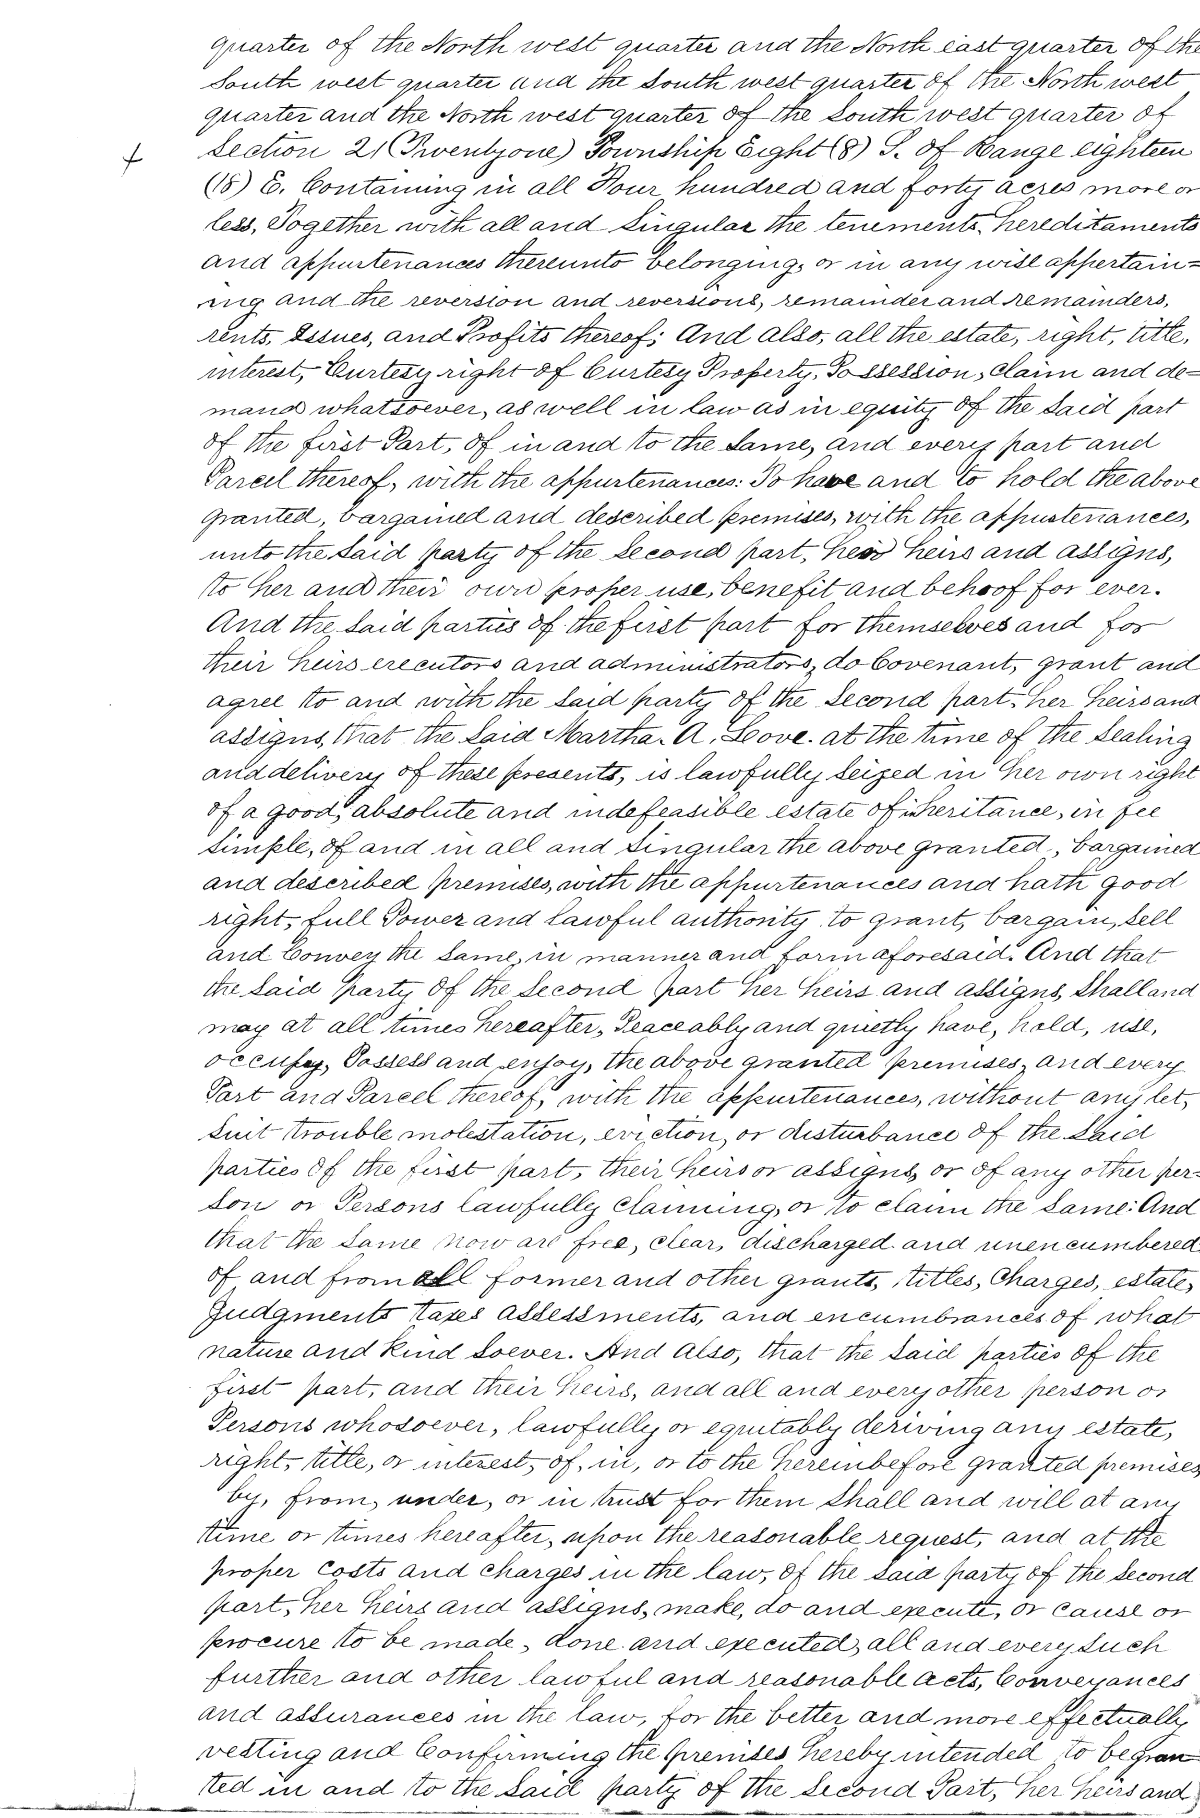 quarter of the North west quarter and the North east quarter of the
South west quarter and the South west quarter of the North west
quarter and the North west quarter of the South west quarter of
Section 21 (Twentyone) Township Eight (8) S. of Range eighteen
(18) E. Containing in all Four hundred and forty acres more or
less, Together with all and Singular the tenements, hereditaments
and appurtenances thereunto belonging, or in any wise appertain=
ing and the reversion and reversions, remainder and remainders,
rents, Issues, and Profits thereof; And also, all the estate, right, title,
interest, Curtesy right of Curtesy Property, Possession, Claim and de=
mand whatsoever, as well in law as in equity of the Said part
of the first Part, of in and to the Same, and every part and
Parcel thereof, with the appurtenances: To have and to hold the above
granted, bargained and described premises, with the appurtenances,
unto the Said party of the Second part, heirs and assigns,
to her and their own proper use, benefit and behoof for ever.
And the Said parties of the first part for themselves and for
their heirs executors and administrators, do Covenant, grant and
agree to and with the Said party of the Second part, her heirs and
assigns, that the Said Martha. A. Love. at the time of the Sealing
and delivery of these presents, is lawfully Seized in her own right
of a good, absolute and indefeasible estate of inheritance, in fee
Simple, of and in all and Singular the above granted, bargained
and described premises, with the appurtenances and hath good
right, full Power and lawful authority to grant, bargain, Sell
and Convey the Same, in manner and form aforesaid. And that
the Said party of the Second part her heirs and assigns, Shall and
may at all times hereafter, Peaceably and quietly have, hold, use,
occupy, Possess and enjoy, the above granted premises, and every
Part and Parcel thereof, with the appurtenances, without any let,
Suit trouble molestation, eviction, or disturbance of the Said
parties of the first part, their heirs or assigns, or of any other per=
son or Persons lawfully Claiming, or to claim the Same: And
that the Same now are free, clear, discharged and unencumbered
of and from all former and other grants, titles, Charges, estates,
Judgments taxes assessments, and encumbrances of what
nature and kind Soever. And also, that the Said parties of the
first part, and their heirs, and all and every other person or
Persons whosoever, lawfully or equitably deriving any estate,
right, title, or interest, of, in, or to the hereinbefore granted premises
by, from, under, or in trust for them Shall and will at any
time or times hereafter, upon the reasonable request, and at the
proper costs and charges in the law, of the Said party of the Second
part, her heirs and assigns, make, do and execute, or cause or
procure to be made, done and executed, all and every Such
further and other lawful and reasonable acts, Conveyances
and assurances in the law, for the better and more effectually
vesting and Confirming the premises hereby intended to be gran
ted in and to the Said party of the Second Part, her heirs and